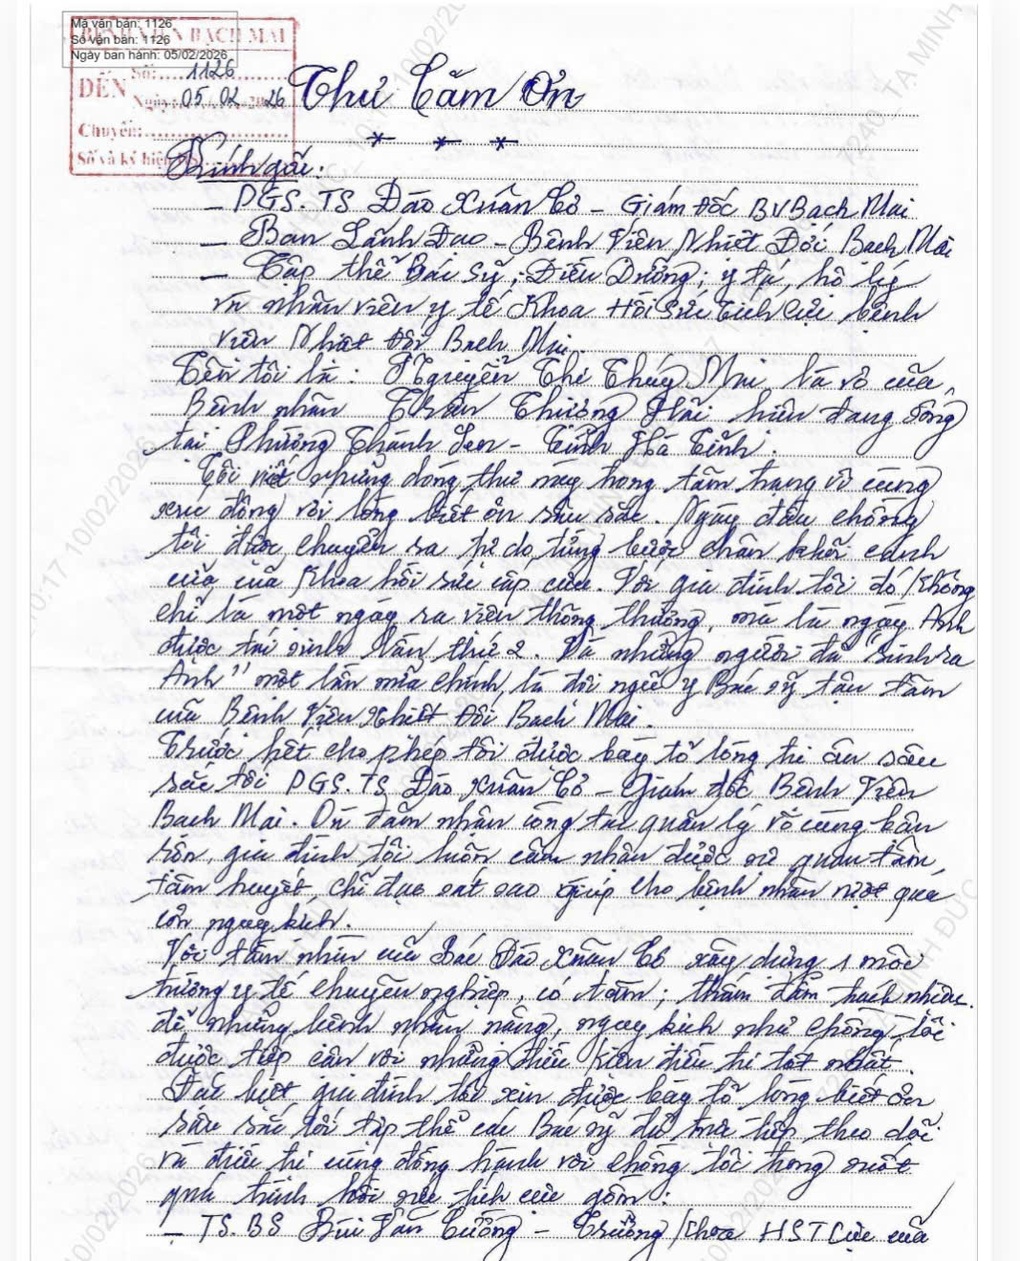 Mã văn bản: 1126
Số văn bản: 1126
Ngày ban hành: 05/02/2026
BỆNH VIỆN BẠCH MAI
ĐẾN Số: 1126
Ngày 05.02.2026
Chuyển:
Số và ký hiệu HS
Thư Cảm Ơn
* * *
Kính gửi:
PGS.TS Đào Xuân Cơ - Giám đốc BV Bạch Mai
- Ban Lãnh Đạo - Bệnh Viện Nhiệt Đới Bạch Mai
- Tập thể Bác Sỹ; Điều Dưỡng; y tá, hộ lý
và nhân viên y tế Khoa Hồi Sức Tích Cực bệnh
viện Nhiệt đới Bạch Mai.
Tên tôi là: Nguyễn Thị Thúy Mai, là vợ của
Bệnh nhân Trần Thường Hải hiện đang sống
tại Phường Thành Sen - Tỉnh Hà Tĩnh.
Tôi viết những dòng thư này trong tâm trạng vô cùng
xúc động với lòng biết ơn sâu sắc. Ngày đầu chồng
tôi được chuyển ra tự do từng bước chân khỏi cánh
cửa của Khoa hồi sức cấp cứu. Với gia đình tôi đó không
chỉ là một ngày ra viện thông thường, mà là ngày Anh
được tái sinh lần thứ 2. Và những người đã "sinh ra
Anh" một lần nữa chính là đội ngũ y Bác sỹ tận tâm
của Bệnh Viện Nhiệt Đới Bạch Mai.
Trước hết cho phép tôi được bày tỏ lòng tri ân sâu
sắc tới PGS.TS Đào Xuân Cơ - Giám đốc Bệnh Viện
Bạch Mai. Dù đảm nhận công tác quản lý vô cùng bận
rộn, gia đình tôi luôn cảm nhận được sự quan tâm,
tâm huyết chỉ đạo sát sao giúp cho bệnh nhân vượt qua
cơn nguy kịch.
Với tầm nhìn của Bác Đào Xuân Cơ xây dựng 1 môi
trường y tế chuyên nghiệp, có tâm; thấm đẫm trách nhiệm.
để những bệnh nhân nặng, nguy kịch như chồng tôi
được tiếp cận với những điều kiện điều trị tốt nhất.
Đặc biệt gia đình tôi xin được bày tỏ lòng biết ơn
sâu sắc tới tập thể các Bác sỹ đã trực tiếp theo dõi
và điều trị cùng đồng hành với chồng tôi trong suốt
quá trình hồi sức tích cực gồm:
- TS.BS Bùi Văn Cường - Trưởng Khoa HST Cực của